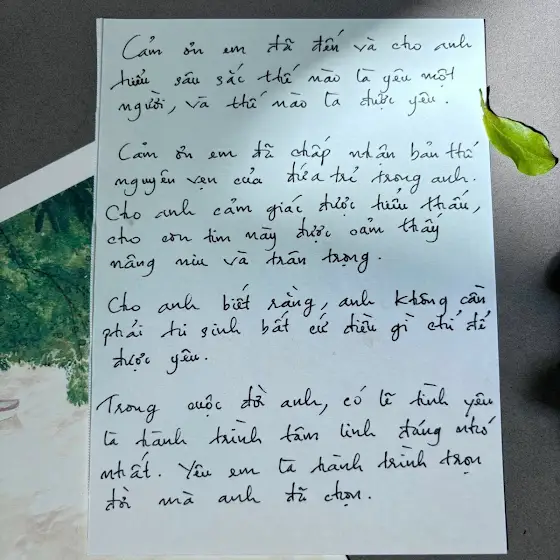 Cảm ơn em đã đến và cho anh
hiểu sâu sắc thế nào là yêu một
người, và thế nào là được yêu.
Cảm ơn em đã chấp nhận bản thể
nguyên vẹn của đứa trẻ trong anh.
Cho anh cảm giác được hiểu thấu,
cho con tim này được cảm thấy
nâng niu và trân trọng.
Cho anh biết rằng, anh không cần
phải hi sinh bất cứ điều gì chỉ để
được yêu.
Trong cuộc đời anh, có lẽ tình yêu
là hành trình tâm linh đáng nhớ
nhất. Yêu em là hành trình trọn
đời mà anh đã chọn.